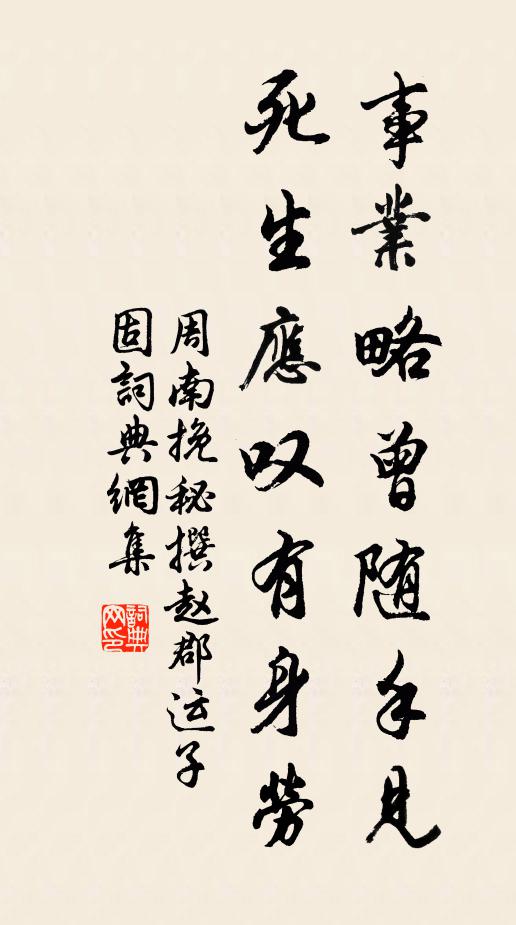 事業略曾随手見
死生應叹有身勞
周南挽秘撰赵郡运子
固詞典網集
詞典网印